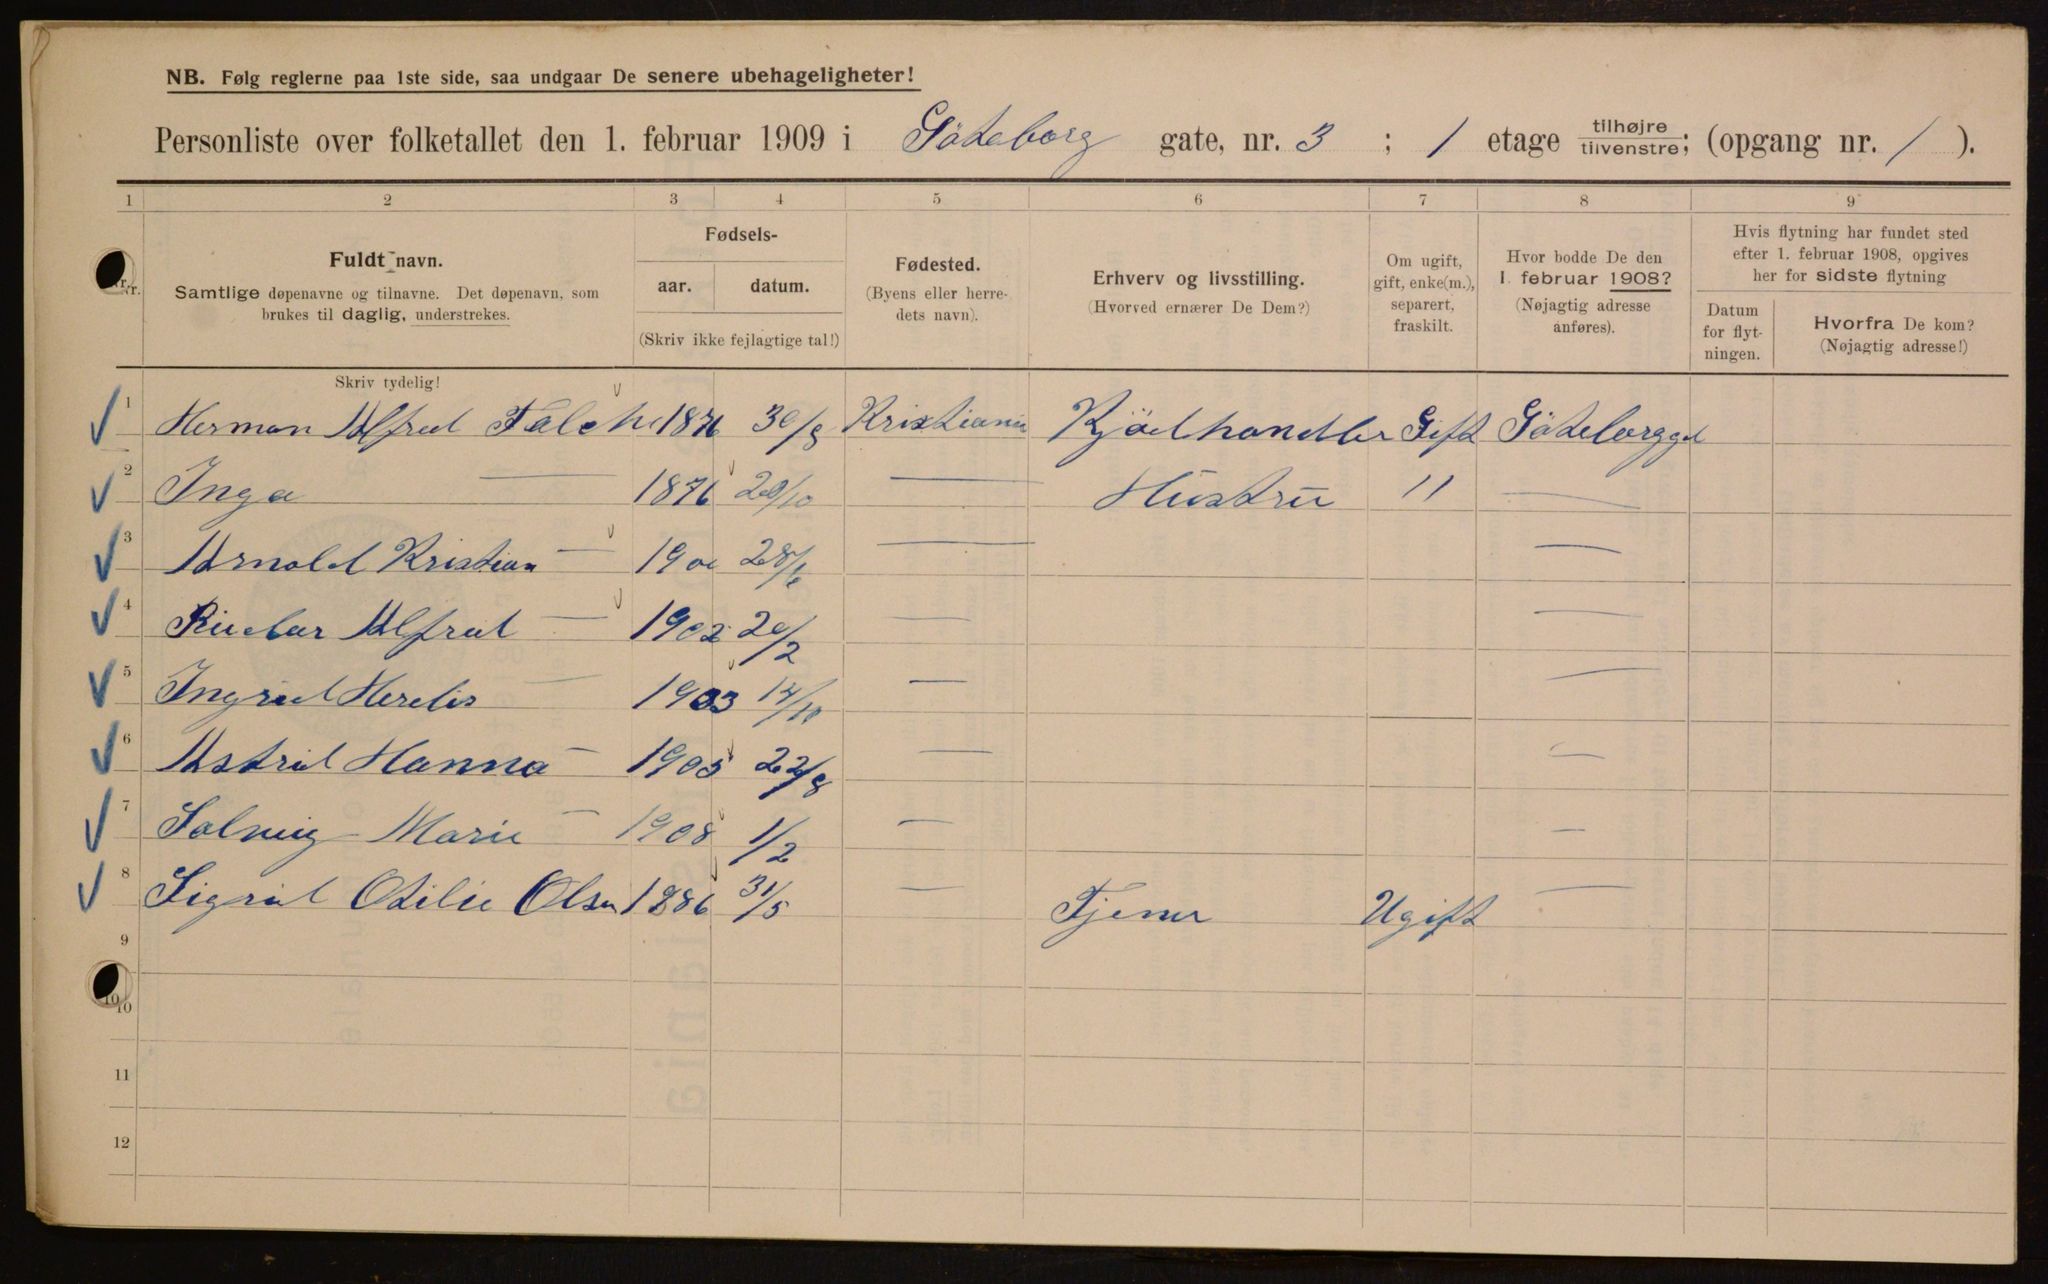 NB. Følg reglerne paa 1ste side, saa undgaar De senere ubehageligheter!
Personliste over folketallet den 1. februar 1909 i Göteborg gate, nr. 3 ; 1 etage tilhøjre tilvenstre; (opgang nr. 1 ).
1 2 3 4 5 6 7 8 9
Nr.
Fuldt navn.
Samtlige døpenavne og tilnavne. Det døpenavn, som
brukes til daglig, understrekes.
Skriv tydelig!
Fødsels-
aar. datum.
(Skriv ikke fejlagtige tal!)
Fødested.
(Byens eller herre-
dets navn).
Erhverv og livsstilling.
(Hvorved ernærer De Dem?)
Om ugift,
gift, enke(m.),
separert,
fraskilt.
Hvor bodde De den
1. februar 1908?
(Nøjagtig adresse
anføres).
Hvis flytning har fundet sted
efter 1. februar 1908, opgives
her for sidste flytning
Datum
for flyt-
ningen.
Hvorfra De kom?
(Nøjagtig adresse!)
1 Herman Alfred Falch 1876 30/8 Kristiania Kjödhandler Gift Göteborggd
2 Inga — 1876 20/10 — Hustru 11 —
3 Arnold Kristian — 190 28/6 — —
4 Alfred — 1902 20/2 — —
5 Ingrid — 1903 /10 — —
6 Astrid Hanna — 1905 22/8 — —
7 Solveig Marie — 1908 1/2 — —
8 Sigrid Otilie Olsen 1886 31/5 — Tjener Ugift —
9
10
11
12